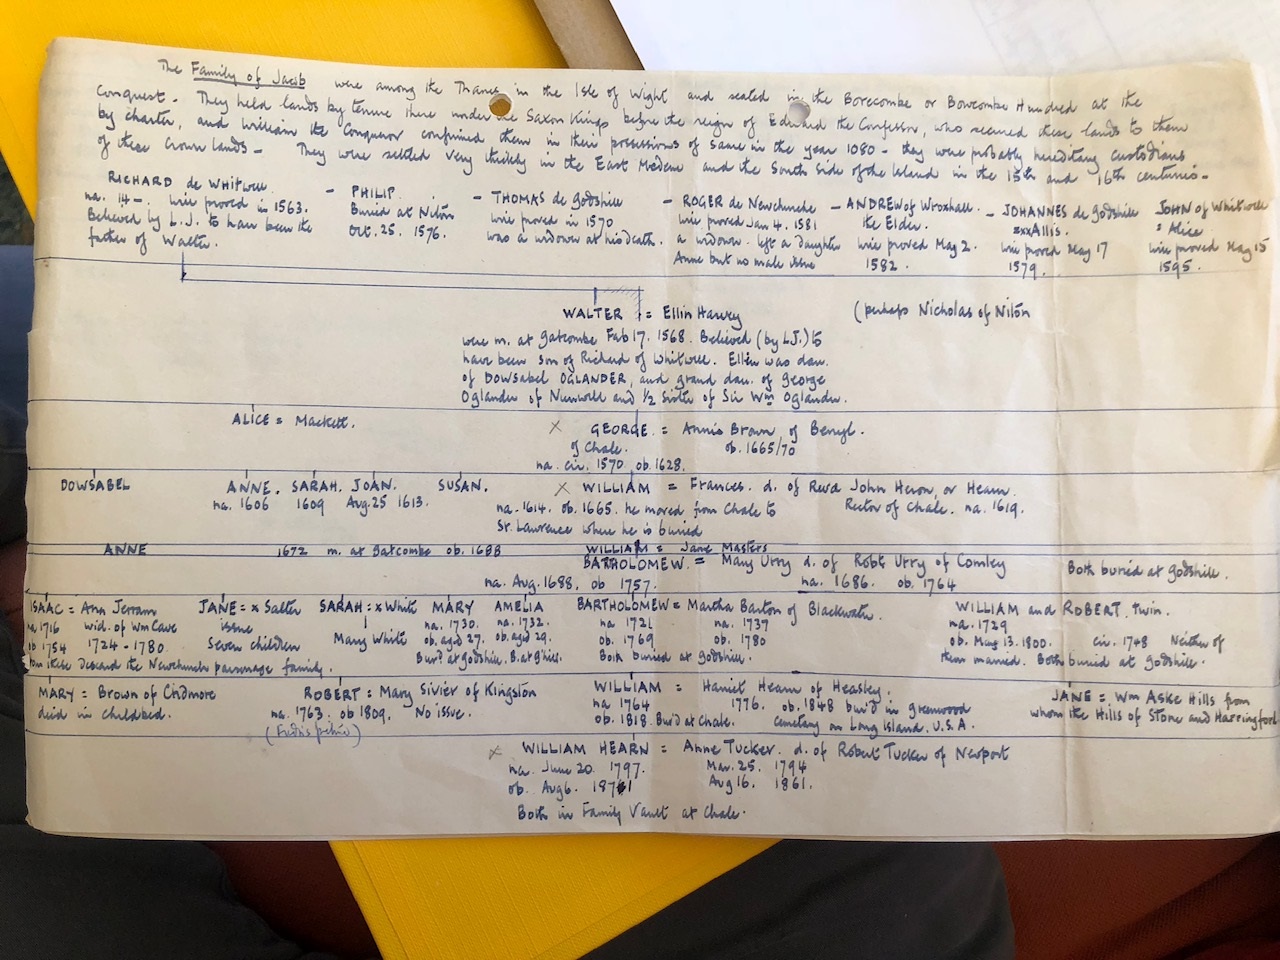 The Family of Jacob were among the Thanes in the Isle of Wight and seated in the Borecombe or Bowcombe Hundred at the
Conquest. They held lands by tenure there under the Saxon Kings before the reign of Edward the Confessor, who secured these lands to them
by charter, and William the Conqueror confirmed them in their possessions of same in the year 1080 - they were probably hereditary custodians
of these Crown lands - They were settled very thickly in the East Medene and the South Side of the Island in the 15th and 16th centuries -
RICHARD de Whitwell
na. 14-. Will proved in 1563.
Believed by L.J. to have been the
father of Walter.
- PHILIP.
Buried at Niton
Oct. 25. 1576.
- THOMAS de Godshille
will proved in 1570
was a widower at his death.
- ROGER de Newchurche
will proved Jan 4. 1581
a widower. left a daughter
Anne but no male issue
- ANDREW of Wroxhall.
the Elder.
will proved May 2.
1582.
- JOHANNES de Godshille
= xx Allis.
will proved May 17
1579.
JOHN of Whitwell
= Alice
will proved May 15
1595.
WALTER = Ellin Harvey
(perhaps Nicholas of Niton
were m. at Gatcombe Feb 17. 1568. Believed (by L.J.) to
have been son of Richard of Whitwell. Ellin was dau.
of DOWSABEL OGLANDER, and grand dau. of George
Oglander of Nunwell and ½ sister of Sir Wm Oglander.
ALICE = Mackett.
x GEORGE = Annis Brown of Benyl.
of Chale. ob. 1665/70
na. cir. 1570 ob. 1628.
DOWSABEL
ANNE. SARAH. JOAN. SUSAN.
na. 1606 1609 Aug. 25 1613.
x WILLIAM = Frances. d. of Revd John Heron, or Hearn.
na. 1614. ob. 1665. he moved from Chale to Rector of Chale. na. 1619.
St. Lawrence where he is buried
ANNE 1672 m. at Gatcombe ob. 1688 WILLIAM = Jane Masters
BARTHOLOMEW = Mary Urry d. of Robt Urry of Comley Both buried at Godshill.
na. Aug. 1688. ob 1757. na. 1686. ob. 1764
ISAAC = Ann Jerram
na 1716 wid. of Wm Cave
ob 1754 1724 - 1780.
from these descend the Newchurch parsonage family.
JANE = x Salter
issue
Seven children
SARAH = x White
Mary White
MARY
na. 1730.
ob. aged 27.
Burd at Godshill.
AMELIA
na. 1732.
ob. aged 29.
B. at G'hill.
BARTHOLOMEW = Martha Barton of Blackwater.
na. 1721 na. 1737
ob. 1769 ob. 1780
Both buried at Godshill.
WILLIAM and ROBERT. twin.
na. 1729
ob. May 13. 1800. cir. 1748 Neither of
them married. Both buried at Godshill.
MARY = Brown of Chidmore
died in childbed.
ROBERT = Mary Sivier of Kingston
na. 1763. ob 1809. No issue.
WILLIAM = Harriet Hearn of Heasley.
na 1764 1776. ob. 1848 bur'd in Greenwood
ob. 1818. Bur'd at Chale. Cemetary on Long Island. U.S.A.
JANE = Wm Aske Hills from
whom the Hills of Stone and Harringford
x WILLIAM HEARN = Anne Tucker. d. of Robert Tucker of Newport
na. June 20. 1797. Mar. 25. 1794
ob. Aug 6. 1871 Aug 16. 1861.
Both in Family Vault at Chale.